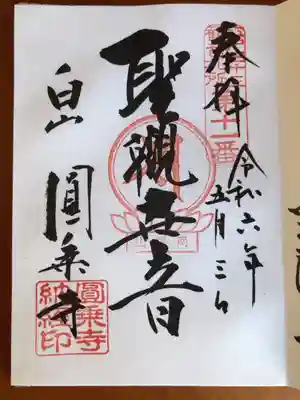 奉拝
令和六年
五月三日
聖観世音
白山
圓乗寺
圓乗寺
納経印